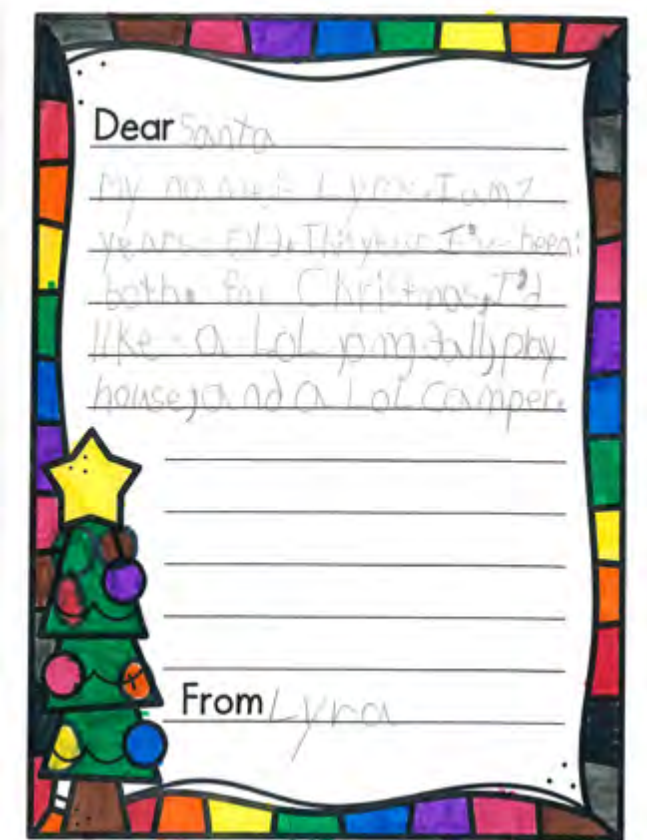 Dear Santa
My name is Lyra. I am 7
years old. This year I've been
both. for Christmas, I'd
like a LOL doll, play
house, and a LOL camper.
From Lyra